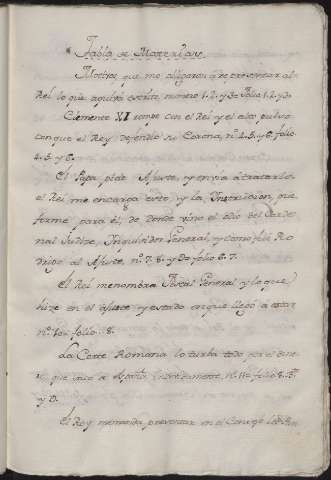 Tabla de Materias.
Motivos que me obligaron à representar al
Rei lo que aquí vá escrito, numero 1. 2. y 3. folio 1. 2. y 3.
Clemente XI rompe con el Rey y el alto pulso
con que el Rey defendio su Corona, nº 4. 5. y 6. folio
4. 5. y 6.
El Papa pide Ajuste, y envia à tratarlo.
el Rei me encarga esto, y la Instruccion, que
forme para él, de donde vino el odio del Carde
nal Judice, Inquisidor General, y como fue Ro
drigo al Ajuste, nº 7. 8. y 9. folio 6. 7.
El Rei me nombra Fiscal General y lo que
hize en el ajuste y estado en que llegó à estar
nº 10. folio 8.
La Corte Romana lo turba todo por el
que à España, nº 11. folio 8.
y 9.
El Rey me manda presentar en el Consejo